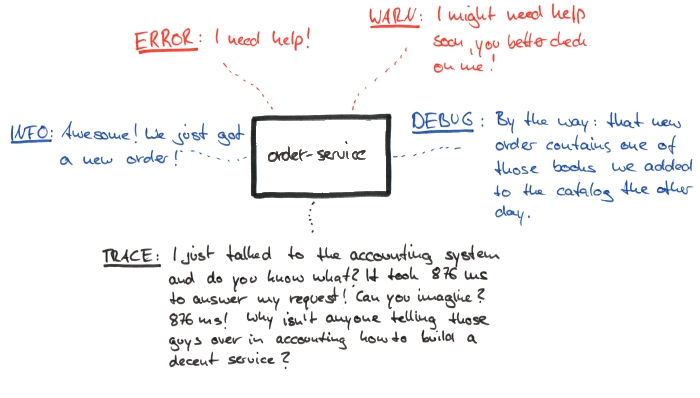 ERROR: I need help!
WARN: I might need help
soon, you better check
on me!
INFO: Awesome! We just got
a new order!
order-service
DEBUG: By the way: that new
order contains one of
those books we added
to the catalog the other
day.
TRACE: I just talked to the accounting system
and do you know what? It took 876 ms
to answer my request! Can you imagine?
876 ms! Why isn't anyone telling those
guys over in accounting how to build a
decent service?